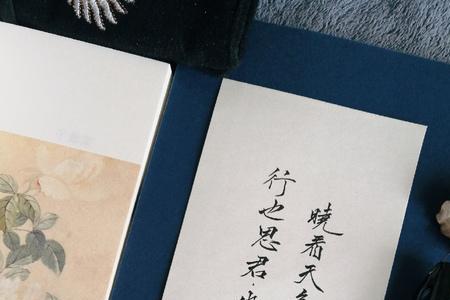 曉看天
行也思君·